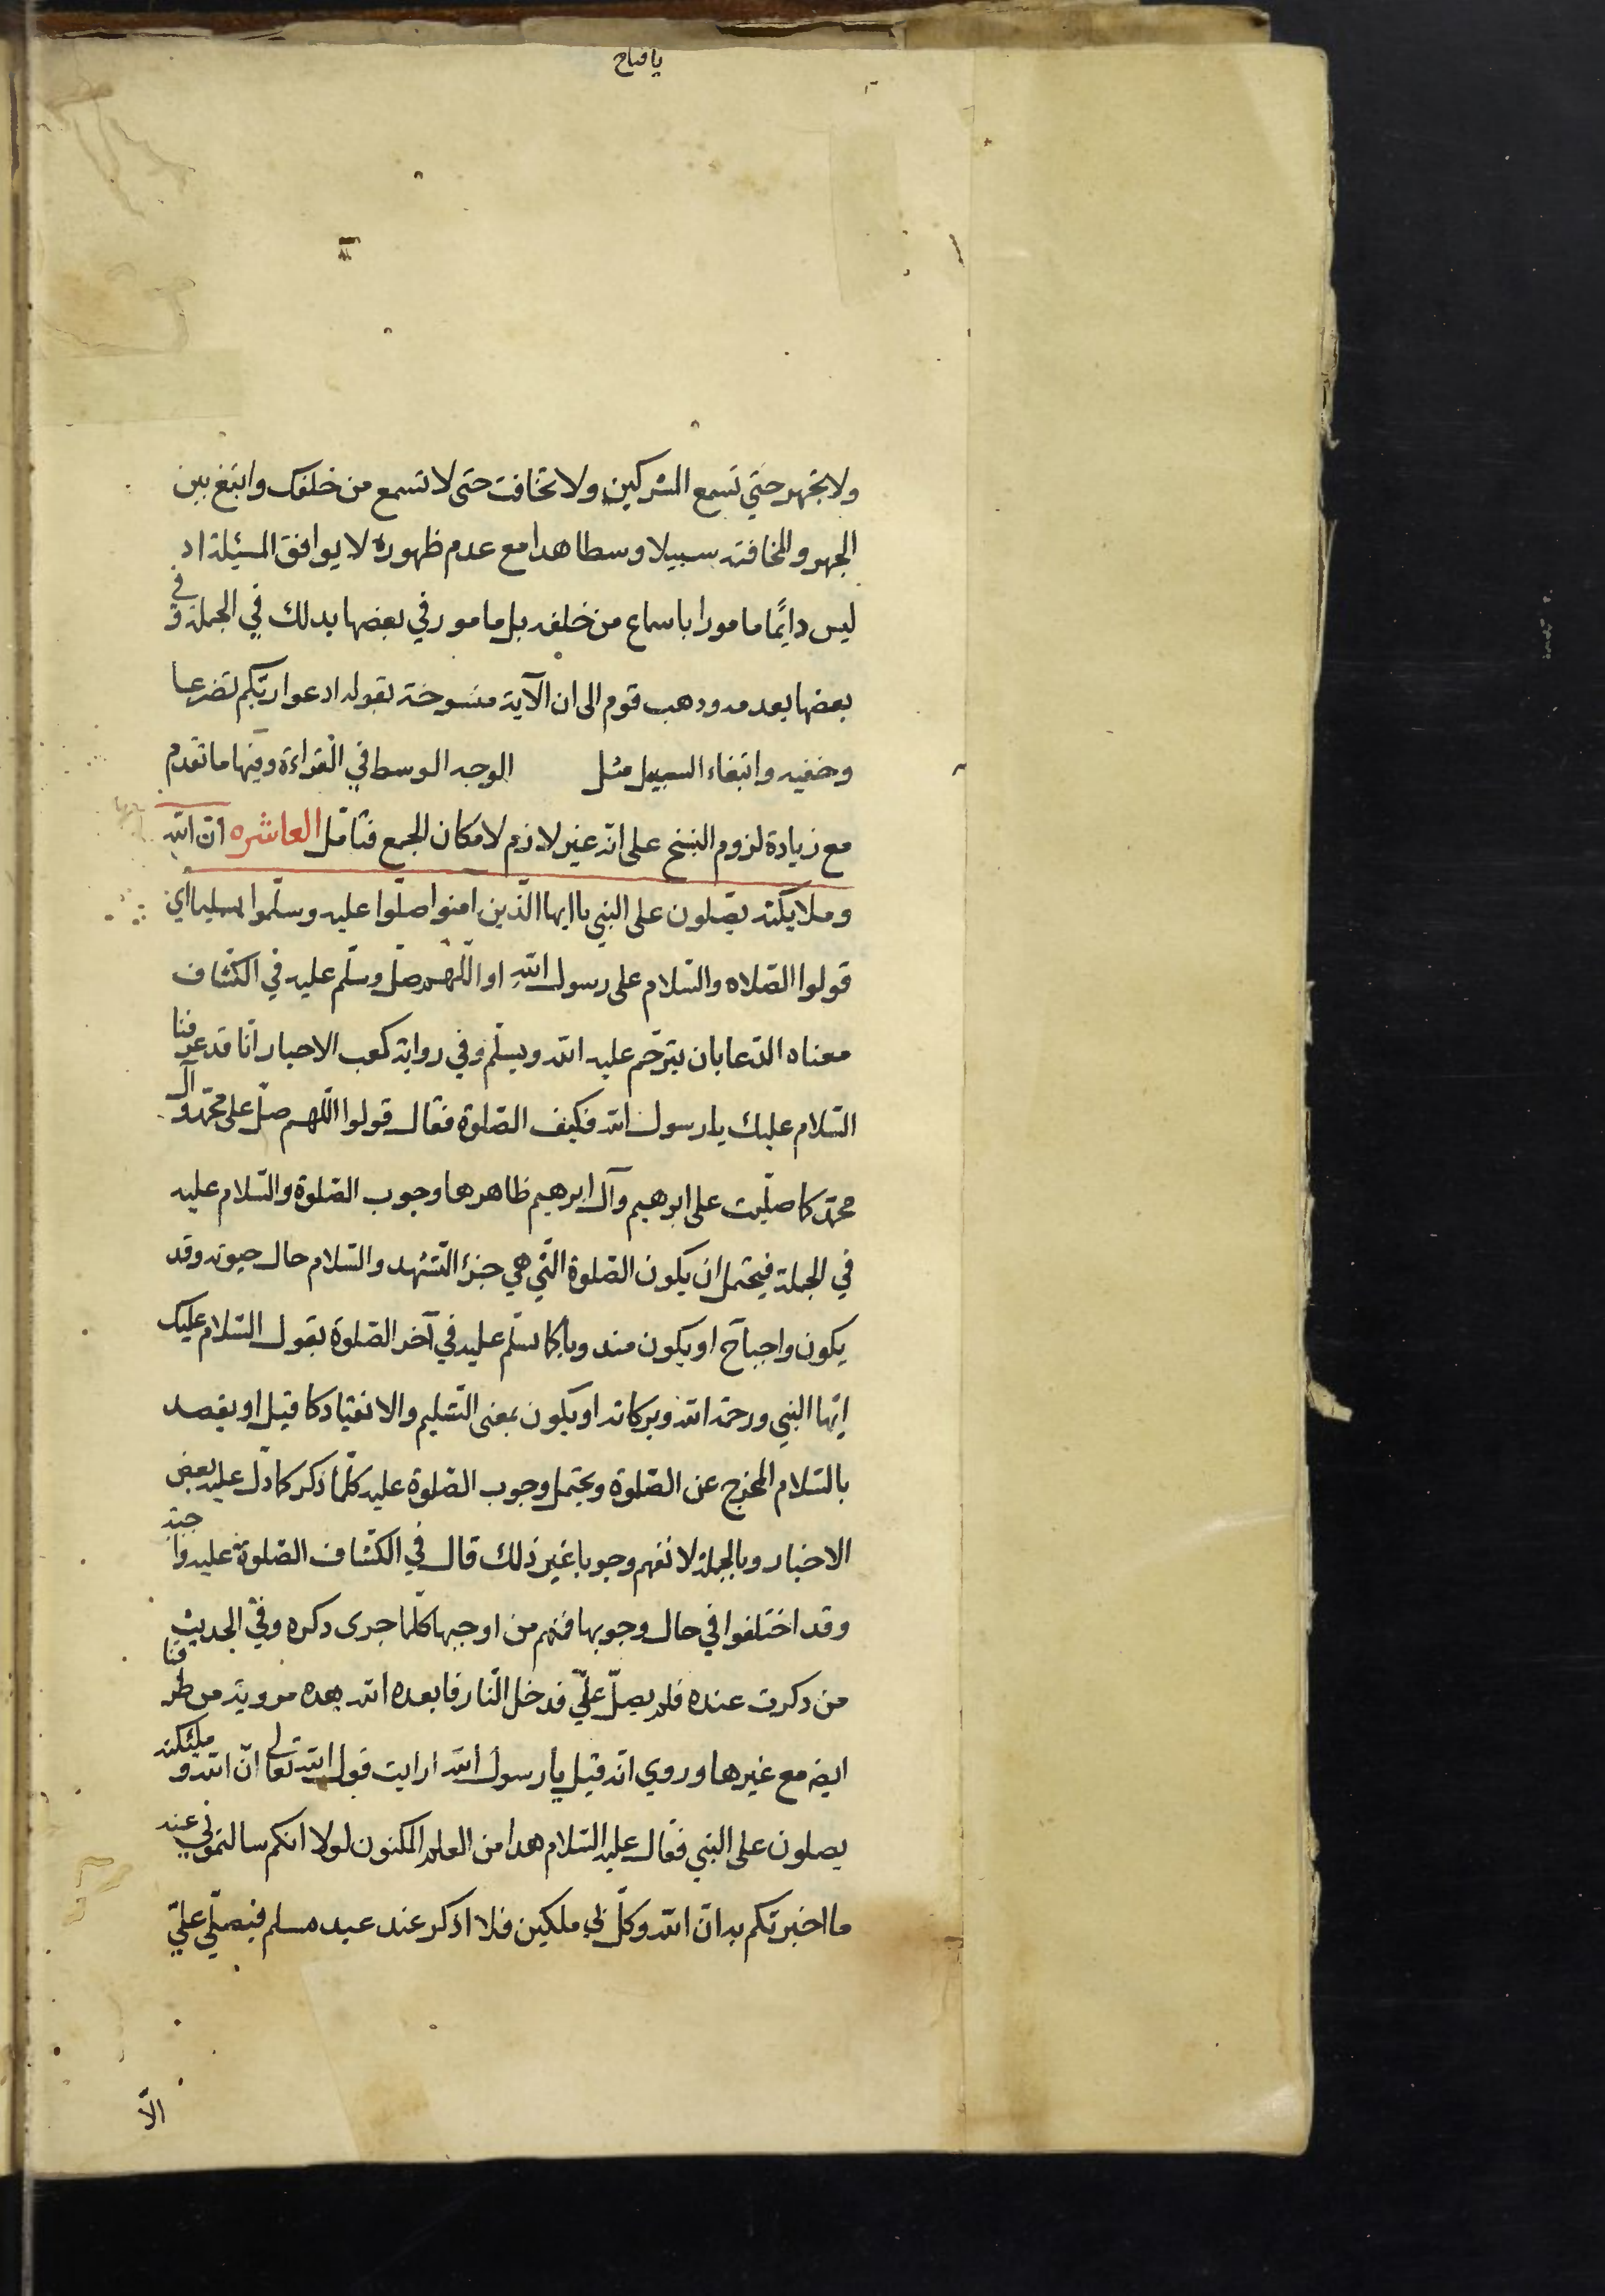 يا فتاح
ولا تجهر حتي تسمع المشركين ولا تخافت حتى لا تسمع من خلفك وابتغ بين
الجهر والمخافته سبيلا وسطا هدا مع عدم ظهوره لا يوافق المسئلة اد
ليس دايًما مامورا باسماع من خلفه بل مامور في بعضها بدلك في الجملة و في
بعضها بعدمه ودهب قوم الى ان الآية منسوخة بقوله ادعوا ربّكم تضرعا
وخفيه وابتغاء السبيل مثل الوجه الوسط في القراءة وفيها ما تقدم
مع زيادة لزوم النسخ على انه غير لازم لامكان الجمع فتامّل العاشره انّ الله
وملايكته يصّلون على النبي ياايها الّذين امنوا صلّوا عليه وسلّموا تسليما اي
قولوا الصّلاه والسّلام على رسول الله او اللّهم صلّ وسلّم عليه في الكشّاف
معناه الدّعا بان يترحّم عليه الله ويسلّم وفي رواية كعب الاحبار انّا قد عرفنا
السّلام عليك يا رسول الله فكيف الصّلوة فقال قولوا اللّهم صلّ على محمّد و آل
محمّد كما صلّيت على ابرهيم وآل ابرهيم ظاهرها وجوب الصّلوة والسّلام عليه
في الجملة فيحتمل ان يكون الصّلوة الّتي هي جزء التّشهد والسّلام حال حيوته وقد
يكون واجبا ح او يكون مندوبا كما نسلّم عليه في آخر الصّلوة بقول السّلام عليك
ايّها النبي ورحمة الله وبركاته او يكون بمعنى التّسليم والانقياد كما قيل او يقصد
بالسّلام المخرج عن الصّلوة ويحتمل وجوب الصّلوة عليه كلّما ذكر كما دلّ عليه بعض
الاخبار وبالجملة لا نفهم وجوبا غير ذلك قال في الكشّاف الصّلوة عليه واجبة
وقد اختلفوا في حال وجوبها فمنهم من اوجبها كلّما جرى دكره وفي الحديث
من دكرت عنده فلم يصلّ علّي فدخل النّار فابعده الله هده مروية من طرقنا
ايضا مع غيرها وروي انّه قيل يا رسول الله ارايت قول الله تعالى انّ الله و ملئكته
يصلون على النبي فقال عليه السّلام هدا من العلم المكنون لولا انكم سالتموني عنه
ما اخبرتكم به انّ الله وكّل لي ملكين فلا اذكر عند عبد مسلم فيصلّي علّي
الّا